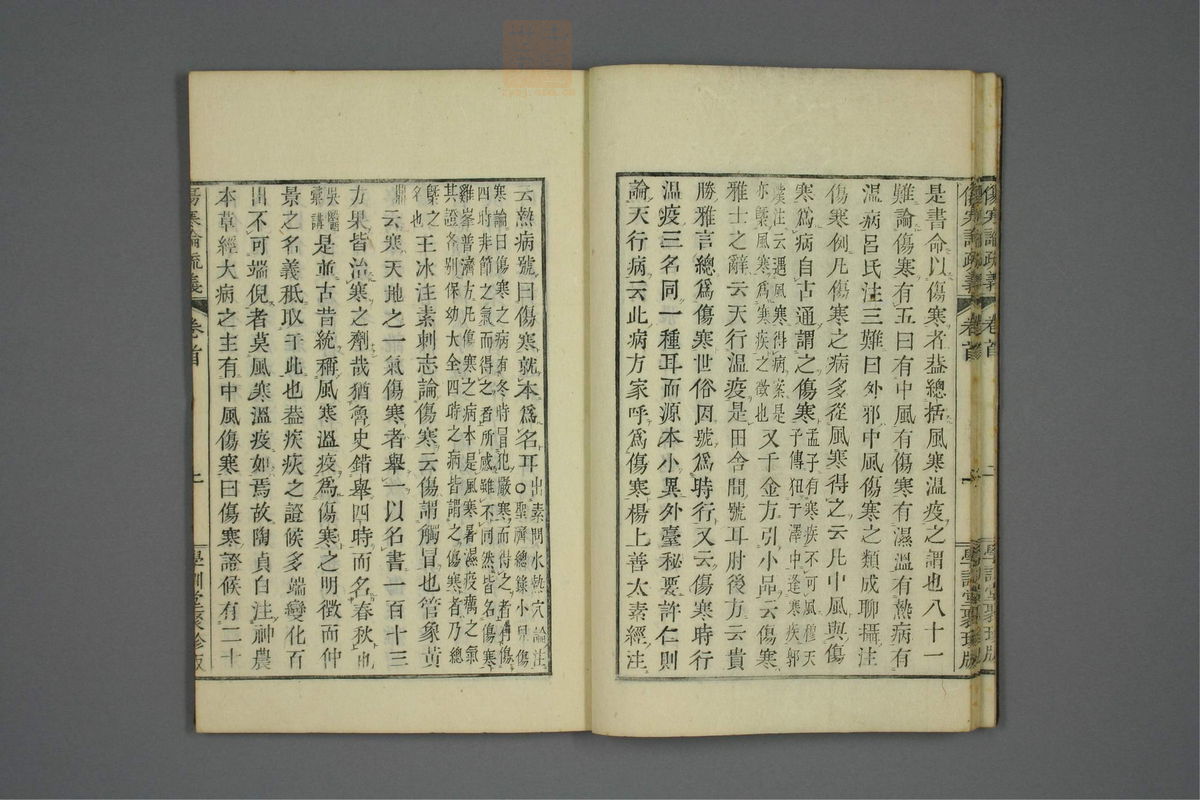 傷寒論疏義 卷首 二 學訓堂聚珍版
是書命以傷寒者蓋總括風寒溫疫之謂也八十一
難論傷寒有五曰有中風有傷寒有濕溫有熱病有
溫病呂氏注三難曰外邪中風傷寒之類成聊攝注
傷寒例凡傷寒之病多從風寒得之云凡中風與傷
寒爲病自古通謂之傷寒孟子有寒疾不可風僖天
予傳狃于澤中逢寒疾郭
璞注云遇風寒得病案是
亦槩風寒爲寒疾之徵也又千金方引小品云傷寒
雅士之辭云天行溫疫是田舍間號耳肘後方云貴
勝雅言總爲傷寒世俗因號爲時行又云傷寒時行
溫疫三名同一種耳而源本小異外臺秘要許仁則
論天行病云此病方家呼爲傷寒楊上善太素經注
云熱病號曰傷寒就本爲名耳○出素問水熱穴論注
聖濟總錄小兒傷
寒論曰傷寒之病有冬時冒犯嚴寒而得之者有傷
四時非節之氣而得之者所感雖不同然皆名傷寒
雞峯普濟方凡傷寒之病本是風寒暑濕疫癘之氣
其證各別保幼大全四時之病皆謂之傷寒者乃總
槩之
名也王冰注素刺志論傷寒云傷謂觸冒也管象黃
云寒天地之一氣傷寒者舉一以名書一百十三
方果皆治寒之劑哉猶魯史錯舉四時而名春秋也
吳醫
彙講是並古昔統稱風寒溫疫爲傷寒之明徵而仲
景之名義秪取于此也蓋疾疢之證候多端變化百
出不可端倪者莫風寒溫疫如焉故陶貞白注神農
本草經大病之主有中風傷寒曰傷寒證候有二十
傷寒論疏義 卷首 二 學訓堂聚珍版